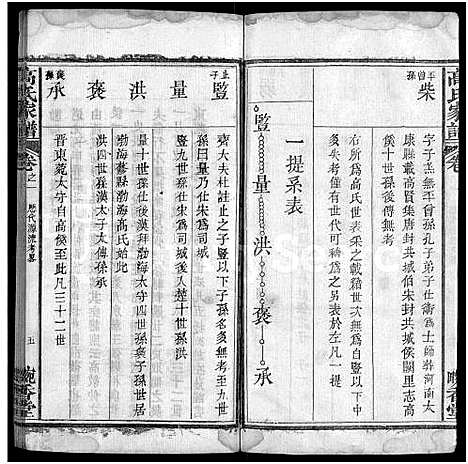 高氏家譜
卷
畹香堂
平曾孫
柴
字子羔無平曾孫孔子弟子仕衛為士師葬河南太
康縣載高賢集唐封共城伯宋封共城侯闕里志高
侯十世孫以下傳無考
右所為高氏世表采之載籍世次無自豎以下中
多失考僅有世代可稱為之另表於左凡一提
一提系表
豎
量
洪
褒
承
止子
豎
齊大夫杜註止之子豎以下子孫名多無考至九世
孫曰量乃仕宋為司城
量
豎九世孫仕宋為司城後入楚十世孫洪
洪
量十世孫仕後漢拜渤海太守四世孫襃子孫世居
渤海蓨縣渤海高氏始此
褒
洪四世孫漢太子太傅孫承
褒孫
承
晉東莞太守自高侯至此凡三十二世
高氏家譜
卷之一
歷代源流考畧
五
畹香堂